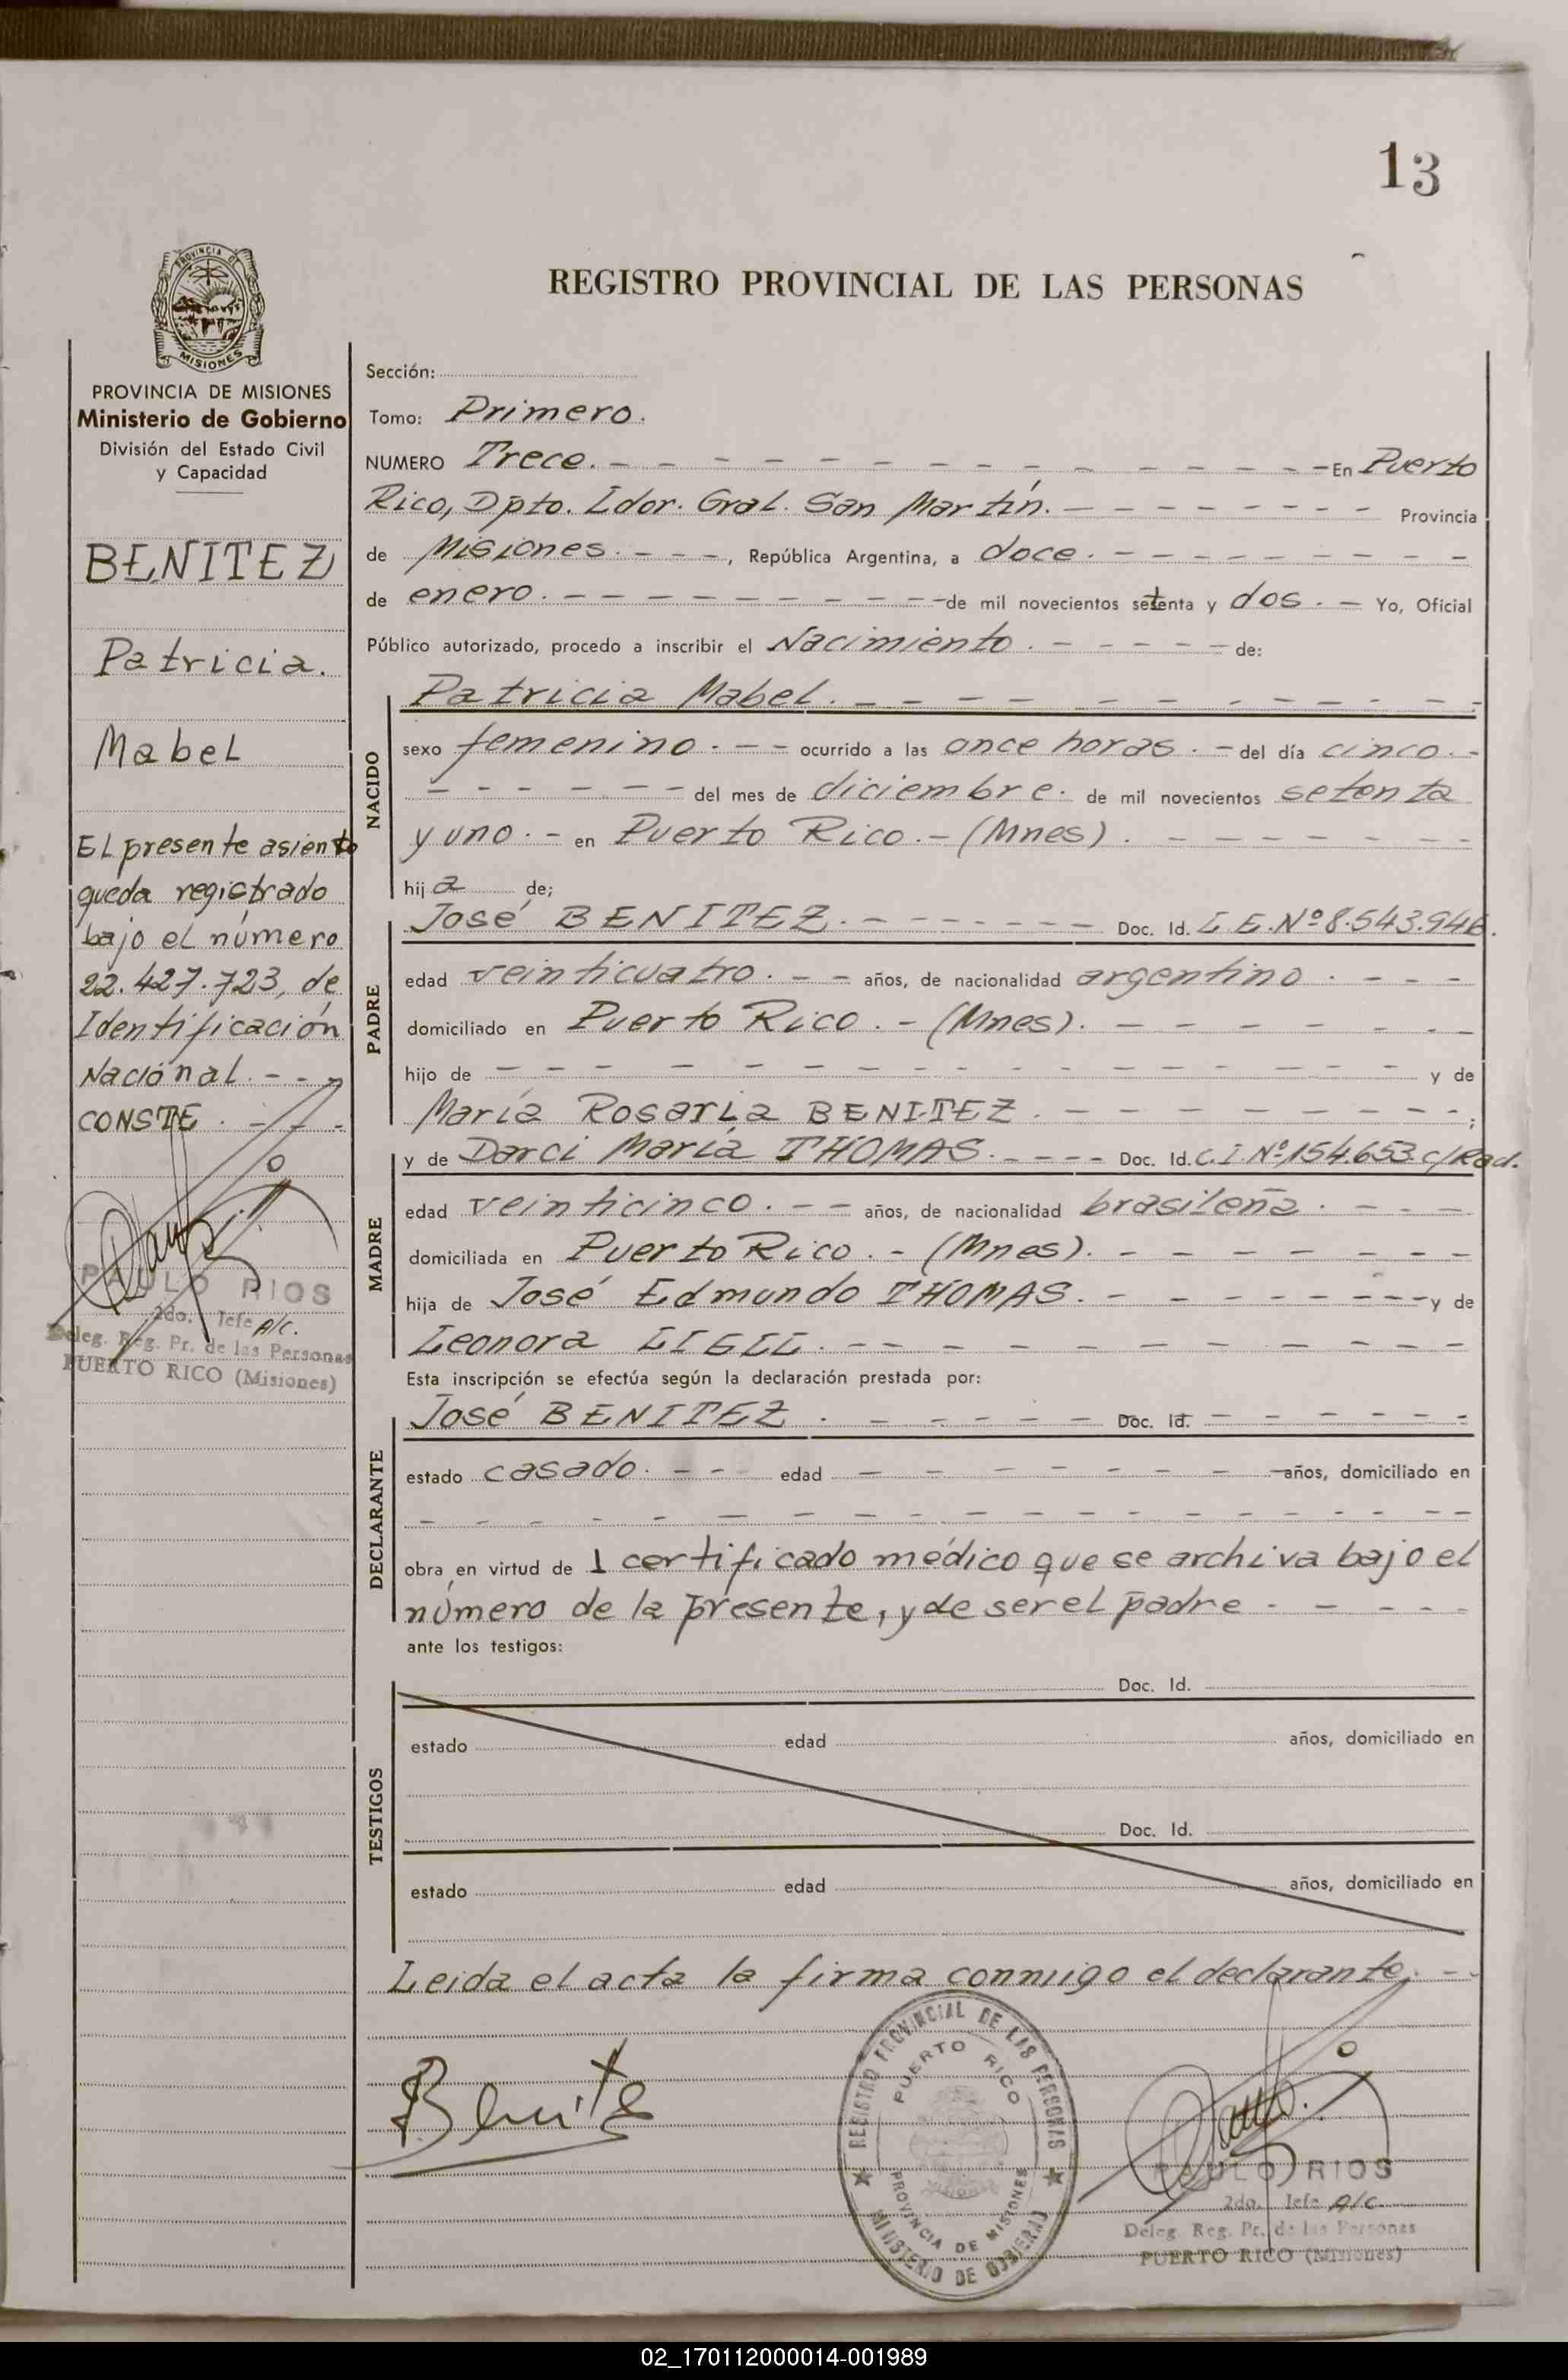 13
REGISTRO PROVINCIAL DE LAS PERSONAS
PROVINCIA DE
MISIONES
PROVINCIA DE MISIONES
Ministerio de Gobierno
División del Estado Civil
y Capacidad
BENITEZ
Patricia.
Mabel
El presente asiento
queda registrado
bajo el número
22.427.723, de
Identificación
Nacional. - - -
CONSTE. - - -
PAULO RIOS
2do. Jefe A/C.
Deleg. Reg. Pr. de las Personas
PUERTO RICO (Misiones)
Sección:
Tomo: Primero.
NUMERO Trece. - - - En Puerto
Rico, Dpto. Ldor. Gral. San Martín. - - - Provincia
de Misiones. - - -, República Argentina, a doce. - - -
de enero. - - - de mil novecientos setenta y dos. - Yo, Oficial
Público autorizado, procedo a inscribir el Nacimiento. - - - de:
NACIDO
Patricia Mabel. - - -
sexo femenino. - - ocurrido a las once horas. - del día cinco. -
- - - del mes de diciembre. de mil novecientos setenta
y uno. - en Puerto Rico. - (Mnes). - - -
hija de;
PADRE
José BENITEZ. - - - Doc. Id. L.E. Nº 8.543.946.
edad veinticuatro. - - años, de nacionalidad argentino. - - -
domiciliado en Puerto Rico. - (Mnes). - - -
hijo de - - - y de
María Rosaria BENITEZ. - - - ;
MADRE
y de Darci María THOMAS. - - - Doc. Id. C.I. Nº 154.653 c/Rad.
edad veinticinco. - - años, de nacionalidad brasileña. - - -
domiciliada en Puerto Rico. - (Mnes). - - -
hija de José Edmundo THOMAS. - - - y de
Leonora - - -
Esta inscripción se efectúa según la declaración prestada por:
DECLARANTE
José BENITEZ. - - - Doc. Id. - - -
estado casado. - - - edad - - - años, domiciliado en
- - -
obra en virtud de 1 certificado médico que se archiva bajo el
número de la presente, y de ser el padre - - -
ante los testigos:
TESTIGOS
Doc. Id.
estado edad años, domiciliado en
Doc. Id.
estado edad años, domiciliado en
Leida el acta la firma conmigo el declarante. - -
Benitez
REGISTRO PROVINCIAL DE LAS PERSONAS
PUERTO RICO
PROVINCIA DE MISIONES
MINISTERIO DE GOBIERNO
PAULO RIOS
2do. Jefe A/C.
Deleg. Reg. Pr. de las Personas
PUERTO RICO (Misiones)
02_170112000014-001989